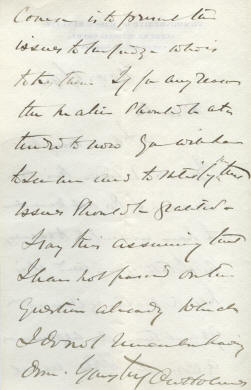 Course is to present the
issues to the judge who is
to try them If for any reason
the matter should be at-
tended to now you will have
to see me and to satisfy that
issues should be granted -
I say this assuming that
I have not passed on the
question already which
I do not remember having
done. Yours truly O W Holmes